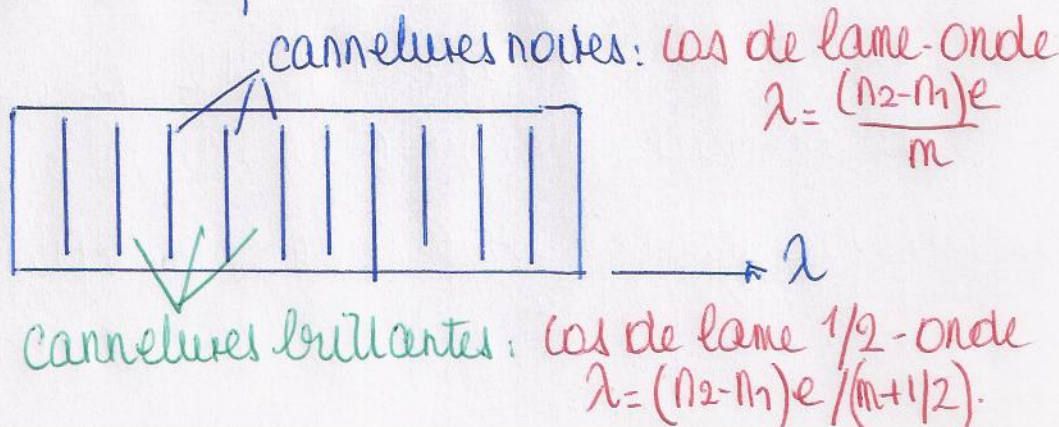 cannelures noires: cas de lame-onde
λ = (n2-n1)e / m
λ
cannelures brillantes: cas de lame 1/2-onde
λ = (n2-n1)e/(m+1/2).